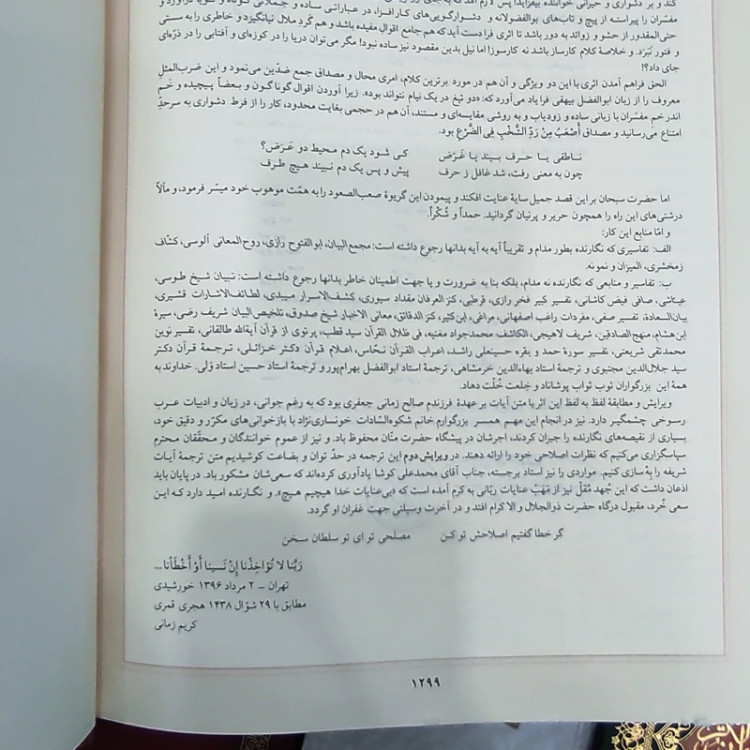 کند و بر دشواری و حیرانی خواننده بیفزاید! پس لازم آمد که به جای
مفسّران را پیراسته از پیچ و تاب‌های بوالفضولانه و دشوارگویی‌های کارافزا، در عباراتی ساده و جملاتی کوتاه و گویا درآورد و
حتی‌المقدور از حشو و زوائد به دور باشد تا اثری فرادست آید که هم جامع اقوالِ مفیده باشد و هم گَردِ ملال نیانگیزد و خاطری را به سستی
و فتور نَبَرد. و خلاصهٔ کلام کارساز باشد نه کارسوز! اما نیل بدین مقصود نیز ساده نبود! مگر می‌توان دریا را در کوزه‌ای و آفتابی را در ذرّه‌ای
جای داد؟!
الحق فراهم آمدن اثری با این دو ویژگی و آن هم در مورد برترین کلام، امری محال و مصداق جمع ضدّین می‌نمود و این ضرب‌المثلِ
معروف را از زبان ابوالفضل بیهقی فرا یاد می‌آورد که: «دو تیغ در یک نیام نتواند بود». زیرا آوردن اقوال گوناگون و بعضاً پیچیده و خَمِ
اندر خمِ مفسّران با زبانی ساده و زودیاب و به روشی مقایسه‌ای و مستند، آن هم در حجمی بغایت محدود، کار را از فرط دشواری به سرحدِّ
امتناع می‌رسانید و مصداق أَصْعَبُ مِنْ رَدِّ الشَّخْبِ فِی الضَّرْعِ بود.
ناطقی یا حرف بیند یا غَرَض کی شود یک دم محیط دو عَرَض؟
چون به معنی رفت، شد غافل ز حرف پیش و پس یک دم نبیند هیچ طرف
اما حضرت سبحان بر این قصد جمیل سایهٔ عنایت افکند و پیمودن این گریوهٔ صعب‌الصعود را به همّت موهوب خود میسّر فرمود، و مآلاً
درشتی‌های این راه را همچون حریر و پرنیان گردانید. حمداً و شُکْراً.
و امّا منابع این کار:
الف: تفاسیری که نگارنده بطور مدام و تقریباً آیه به آیه بدانها رجوع داشته است: مجمع‌البیان، ابوالفتوح رازی، روح‌المعانی آلوسی، کشّاف
زمخشری، المیزان و نمونه.
ب: تفاسیر و منابعی که نگارنده نه مدام، بلکه بنا به ضرورت و یا جهت اطمینان خاطر بدانها رجوع داشته است: تبیان شیخ طوسی،
عیاشی، صافی فیض کاشانی، تفسیر کبیر فخر رازی، قرطبی، کنز العرفان مقداد سیوری، کشف‌الاسرار میبدی، لطائف‌الاشارات قشیری،
بیان‌السعادة، تفسیر صفی، مفردات راغب اصفهانی، مراغی، ابن‌کثیر، کنز الدقائق، معانی الاخبار شیخ صدوق، تلخیص‌البیان شریف رضی، سیرهٔ
ابن‌هشام، منهج‌الصادقین، شریف لاهیجی، الکاشف محمدجواد مغنیه، فی ظلال القرآن سید قطب، پرتوی از قرآن آیةالله طالقانی، تفسیر نوین
محمدتقی شریعتی، تفسیر سورهٔ حمد و بقره حسینعلی راشد، اعراب القرآن نحّاس، اعلام قرآن دکتر خزائلی، ترجمهٔ قرآن دکتر
سید جلال‌الدین مجتبوی و ترجمهٔ استاد بهاءالدین خرمشاهی، ترجمهٔ استاد ابوالفضل بهرام‌پور و ترجمهٔ استاد حسین استاد ولی. خداوند به
همهٔ این بزرگواران ثوب ثواب پوشاناد و خِلعت خُلّت دهاد.
ویرایش و مطابقهٔ لفظ به لفظ این اثر با متن آیات بر عهدهٔ فرزندم صالح زمانی جعفری بود که به رغم جوانی، در زبان و ادبیات عرب
رسوخی چشمگیر دارد. نیز در انجام این مهم همسر بزرگوارم خانم شکوه‌السّادات خونساری‌نژاد با بازخوانی‌های مکرّر و دقیق خود،
بسیاری از نقیصه‌های نگارنده را جبران کردند، اجرشان در پیشگاه حضرت منّان محفوظ باد. و نیز از عموم خوانندگان و محقّقان محترم
سپاسگزاری می‌کنیم که نظرات اصلاحی خود را ارائه دهند. در ویرایش دوم این ترجمه در حدّ توان و بضاعت کوشیدیم متن ترجمهٔ آیات
شریفه را بِهْ‌سازی کنیم. مواردی را نیز استاد برجسته، جناب آقای محمدعلی کوشا یادآوری کرده‌اند که سعی‌شان مشکور باد. در پایان باید
اذعان داشت که این جُهد مُقِلّ نیز از مَهَبّ عنایات ربّانی به کرم آمده است که «بی‌عنایات خدا هیچیم هیچ». و نگارنده امید دارد که این
سعی خُرد، مقبول درگاه حضرت ذوالجلال و الاکرام افتد و در آخرت وسیلتی جهت غفران او گردد.
گر خطا گفتیم اصلاحش تو کن مصلحی تو ای تو سلطان سخن
رَبَّنا لا تُؤاخِذْنا إِنْ نَسینا أَوْ أَخْطَأْنا ...
تهران ــ ۲ مرداد ۱۳۹۶ خورشیدی
مطابق با ۲۹ شوّال ۱۴۳۸ هجری قمری
کریم زمانی
۱۲۹۹